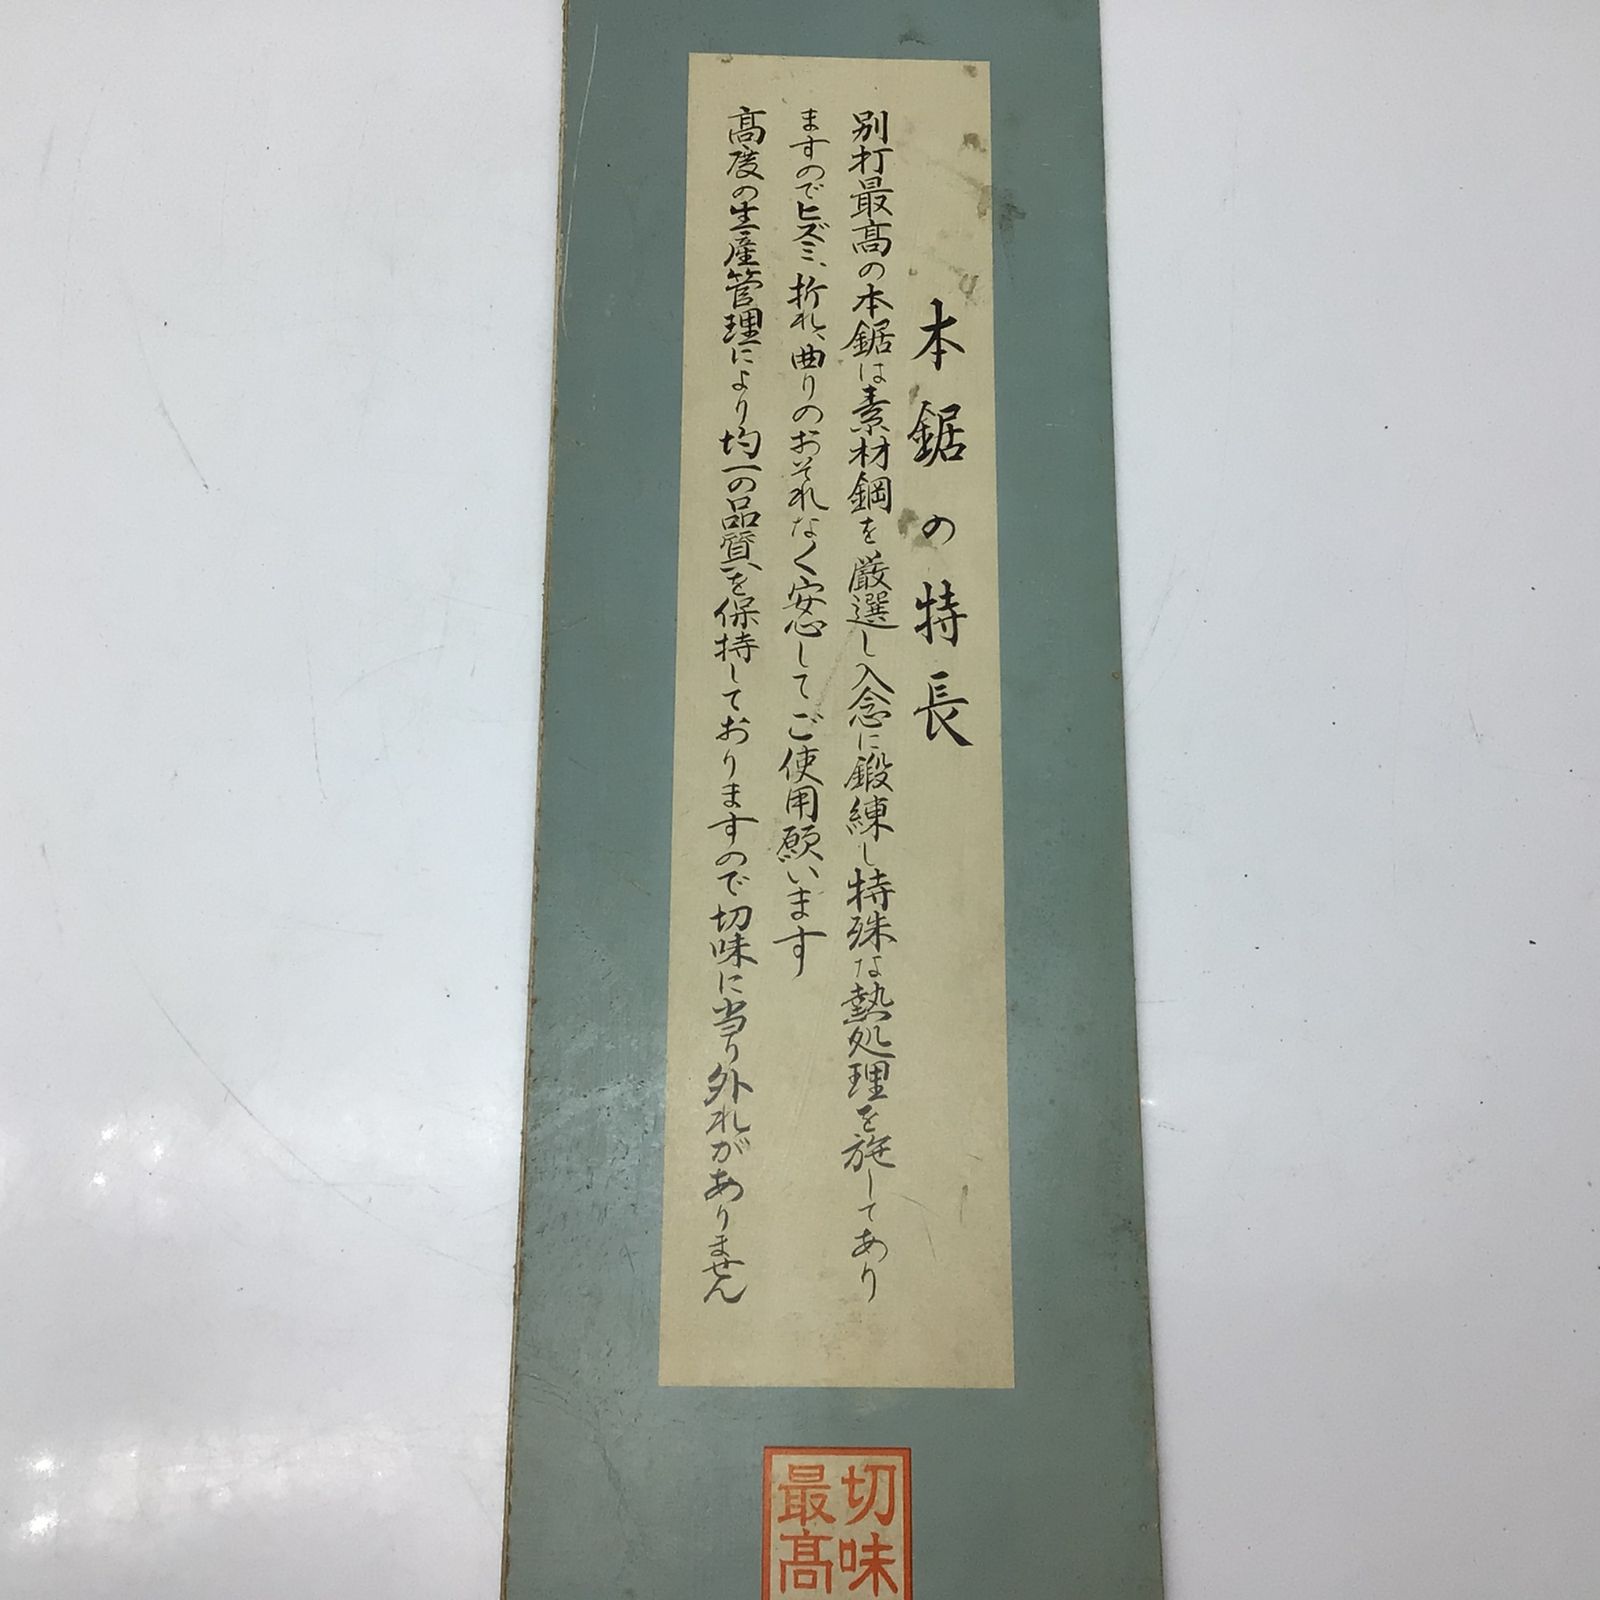 本鋸の特長
別打最髙の本鋸は素材鋼を厳選し入念に鍛練し特殊な熱処理を施してあり
ますのでヒズミ、折れ、曲りのおそれなく安心してご使用願います
髙度の生産管理により均一の品質を保持しておりますので切味に当り外れがありません
切味
最髙